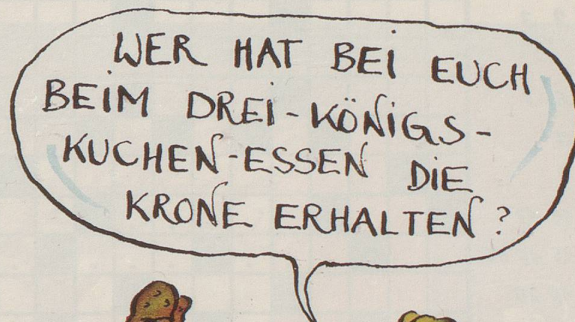 WER HAT BEI EUCH
BEIM DREI-KÖNIGS-
KUCHEN-ESSEN DIE
KRONE ERHALTEN?